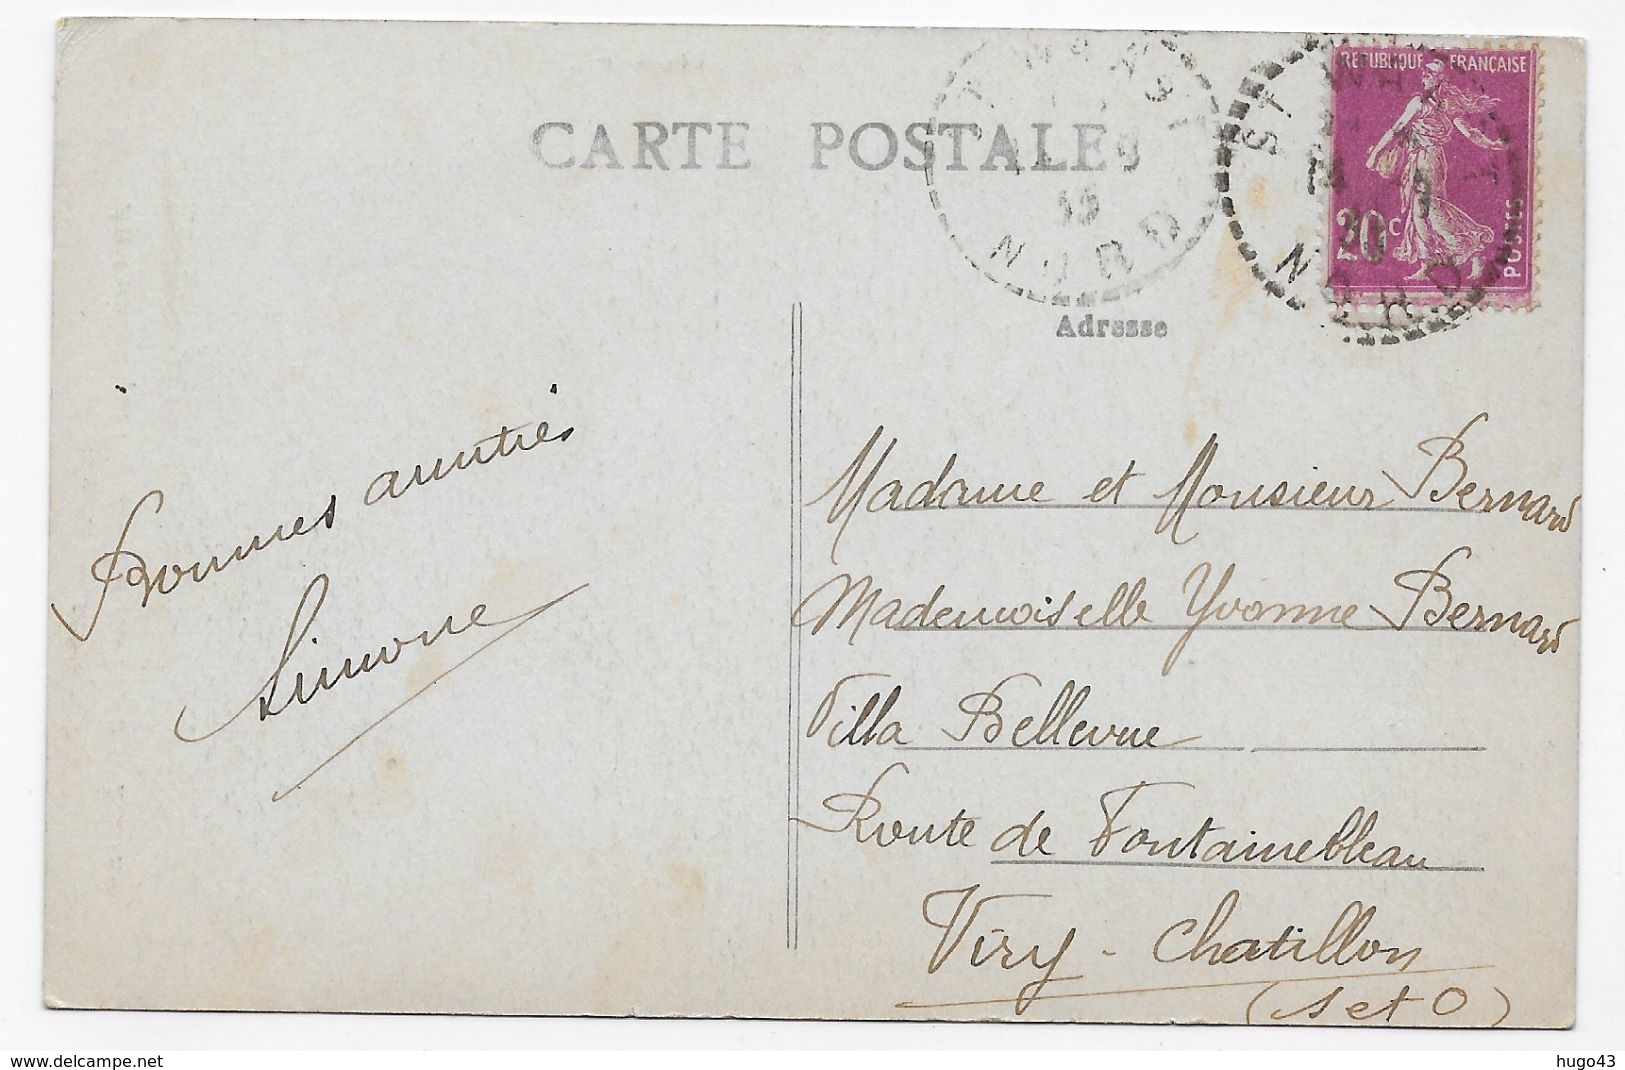 CARTE POSTALE
REPUBLIQUE FRANÇAISE
20c
POSTES
NORD
NORD
Adresse
Bonnes amitiés
Simone
Madame et Monsieur Bernard
Mademoiselle Yvonne Bernard
Villa Bellevue
Route de Fontainebleau
Viry - Chatillon
(S et O)
delcampe.net
hugo43